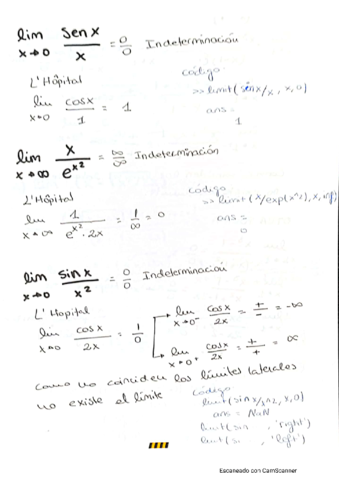 lim sen x / x = 0/0 Indeterminación
x→0
L'Hôpital
lim cos x / 1 = 1
x→0
código
>> limit(sen x/x, x, 0)
ans =
1
lim x / e^x² = ∞/∞ Indeterminación
x→∞
L'Hôpital
lim 1 / e^x²·2x = 1/∞ = 0
x→∞
código
>> limit(x/exp(x^2), x, inf)
ans =
0
lim sin x / x² = 0/0 Indeterminación
x→0
L'Hopital
lim cos x / 2x = 1/0
x→0
lim cos x / 2x = +/- = -∞
x→0⁻
lim cos x / 2x = +/+ = ∞
x→0⁺
como no coinciden los límites laterales
no existe el límite
código
limit(sin x/x^2, x, 0)
ans = NaN
limit(sin , 'right')
limit(si , 'left')
Escaneado con CamScanner